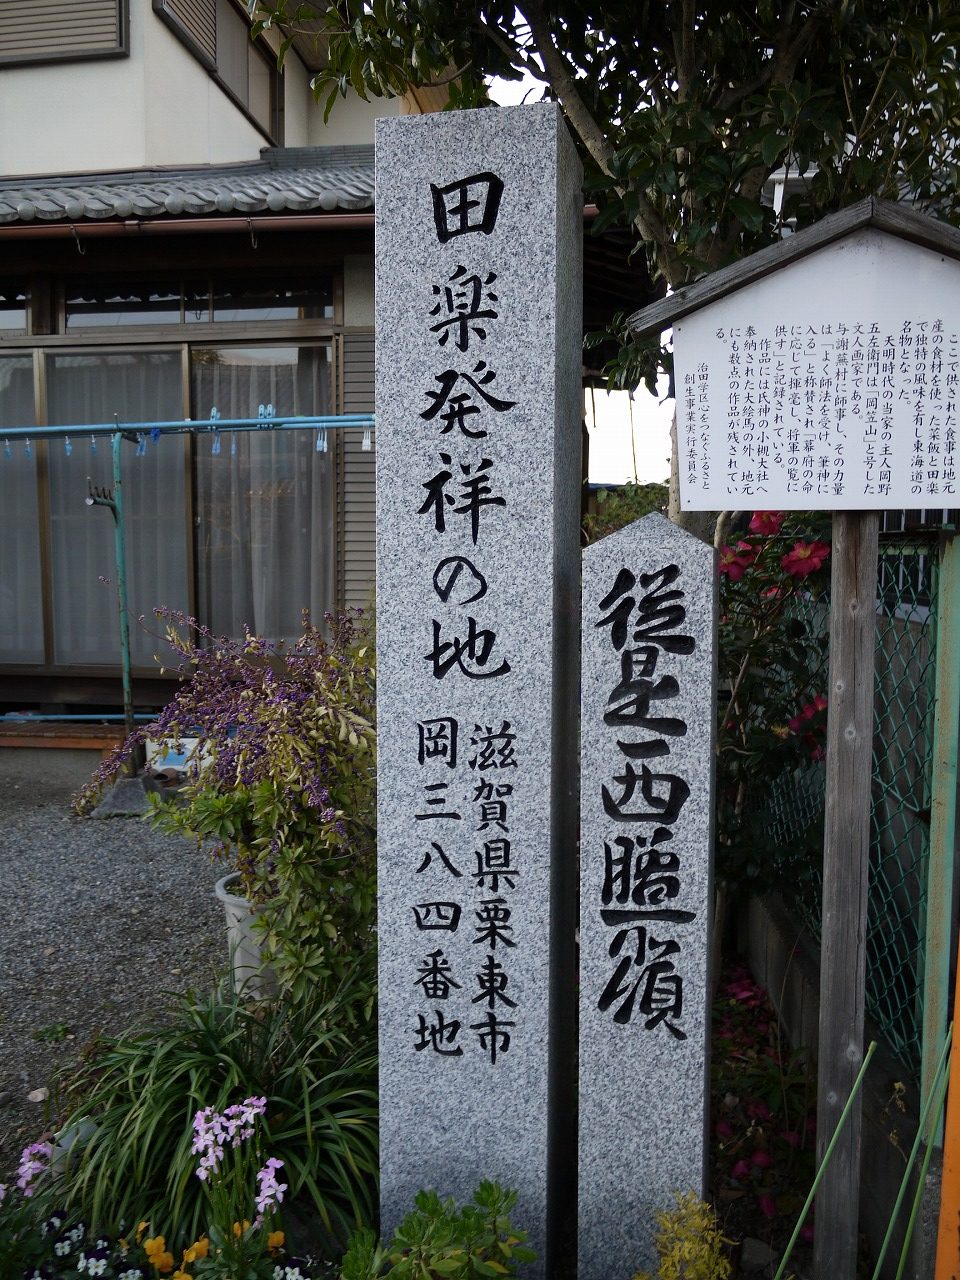 田楽発祥の地
滋賀県栗東市
岡三八四番地
従是西膳所領
ここで供された食事は地元
産の食材を使った菜飯と田楽
で独特の風味を有し東海道の
名物となった。
天明時代の当家の主人岡野
五左衛門は「岡笠山」と号した
文人画家である。
与謝蕪村に師事し、その力量
は「よく師法を受け、筆神に
入る」と称賛され「幕府の命
に応じて揮毫し、将軍の覧に
供す」と記録されている。
作品には氏神の小槻大社へ
奉納された大絵馬の外、地元
にも数点の作品が残されてい
る。
治田学区心をつなぐふるさと
創生事業実行委員会